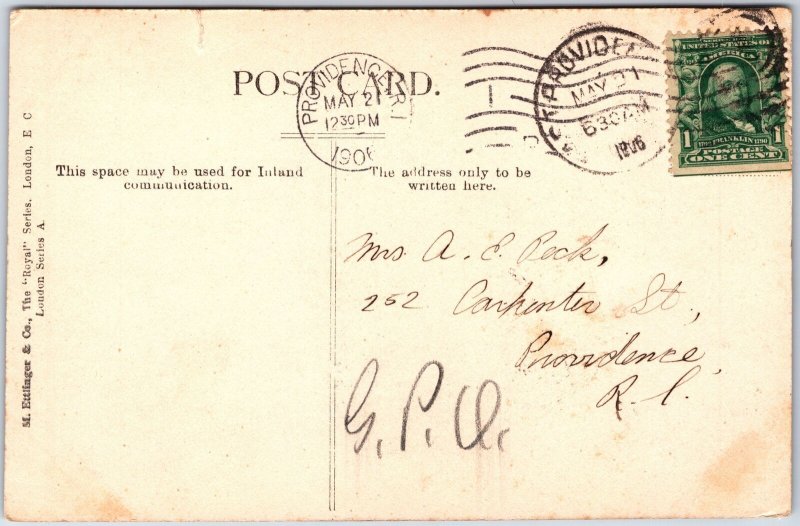 POST CARD.
PROVIDENCE R.I.
MAY 21
12 30 PM
1906
PROVIDE
MAY 21
6 30 AM
1906
UNITED STATES OF
AMERICA
1 FRANKLIN 1
POSTAGE
ONE CENT
This space may be used for Inland
communication.
The address only to be
written here.
M. Ettlinger & Co., The "Royal" Series. London, E C
London Series A
Mrs A. E. Peck,
252 Carpenter St,
Providence,
R. I.
G. P. O.